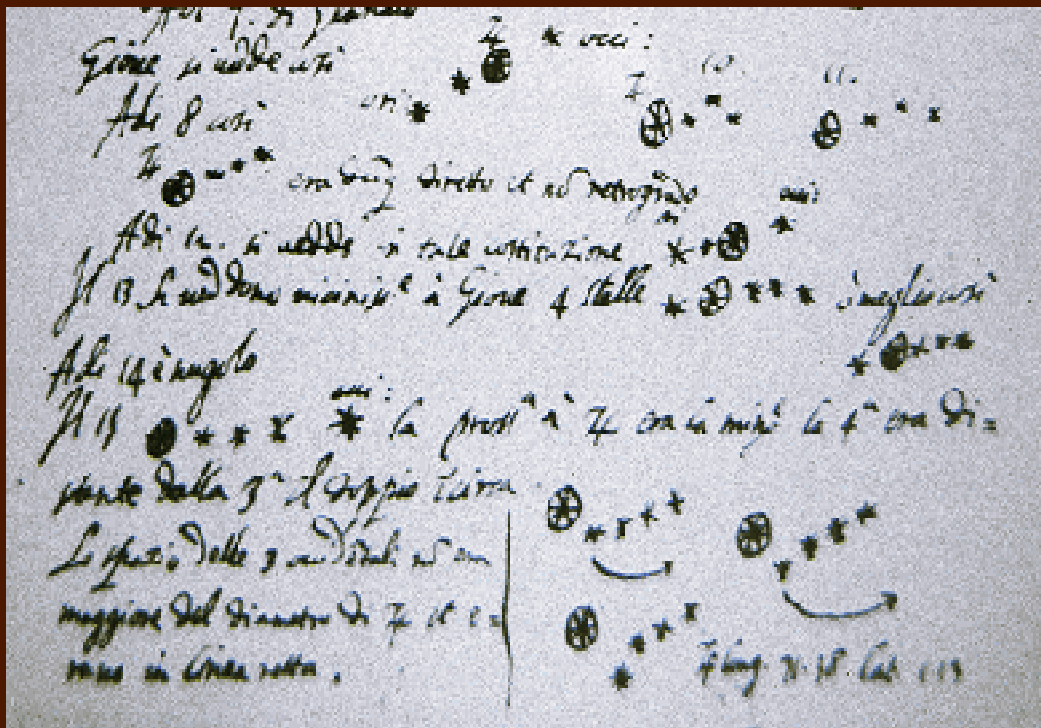 Adi 7. di Gennaio
Gioue si uedde così
♃ * occ:
ori: *
10. 11.
Adi 8 così
♃ era dunq diretto et nõ retrogrado
Adi 12. si uedde in tale costituzione
Il 13 si ueddono à Gioue 4 stelle è meglio così
Adi 14 è nugolo
Il 15 occ: la pross.ª à ♃ era la min.ª la 4.ª era di=
stante dalla 3.ª il doppio circa
Lo spatio delle 3 occidentali nõ era
maggiore del diametro di ♃ et e=
rano in linea retta.
♃ long. 71.38 lat. 1.13